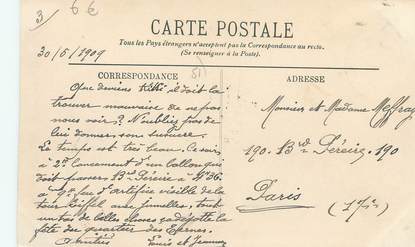 3
6 €
CARTE POSTALE
Tous les Pays étrangers n'acceptent pas la Correspondance au recto.
(Se renseigner à la Poste).
30/5/1909
CORRESPONDANCE
ADRESSE
Que deviens il doit la
trouver mauvaise de ne pas
nous voir? N'oubliez pas de
lui donner son susucre.
Le temps est très beau. Ce soir
à 2h lancement d'un ballon qui
doit passer Bd Péreire à 4h36
à 9h feu d'artifice visible de la
tour Eiffel avec jumelles, tout
un tas de belles choses ça dépote la
fête du quartier des Ternes.
Amitiés Louis et Jeanne
Monsieur et Madame
190 Bd Péreire 190
Paris
(17e)